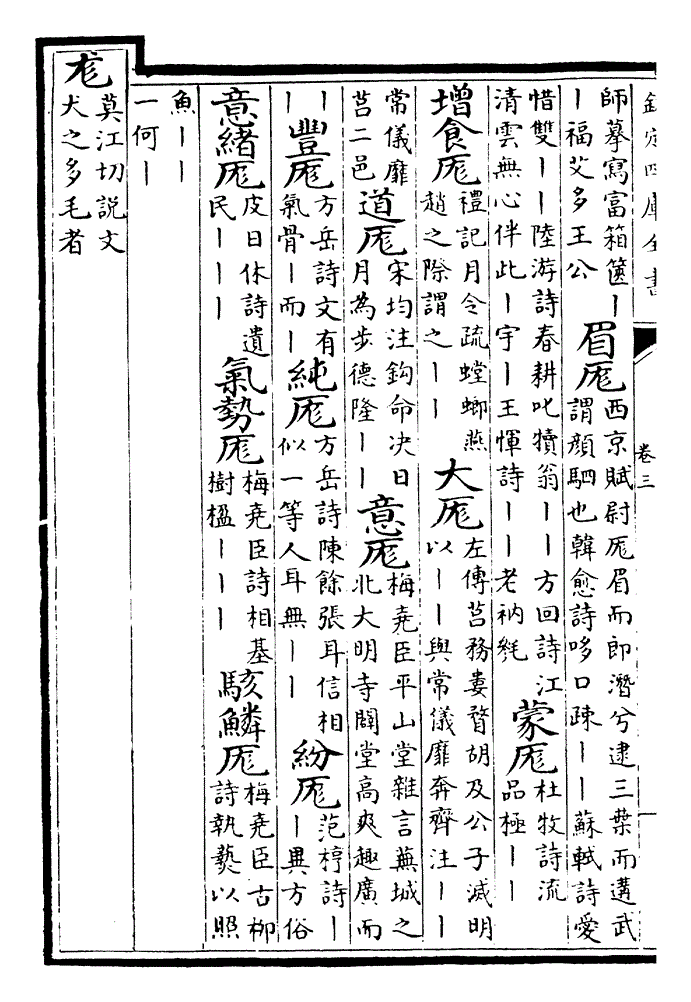 欽定四庫全書 卷三
師摹寫富箱篋丨丨福艾多王公 眉厖 西京賦尉厖眉而郎潛兮逮三葉而遘武謂顔駟也韓愈詩哆口疎丨丨蘇軾詩愛
惜雙丨丨陸游詩春耕叱犢翁丨丨方回詩江清雲無心伴此丨宇丨王惲詩丨丨老衲毿 蒙厖 杜牧詩流品極丨丨
增食厖 禮記月令疏螳螂燕趙之際謂之丨丨 大厖 左傳莒務婁瞀胡及公子滅明以丨丨與常儀靡奔齊注丨丨
常儀靡莒二邑 道厖 宋均注鈎命决日月為步德隆丨丨 意厖 梅堯臣平山堂雜言蕪城之北大明寺闢堂高爽趣廣而
丨丨 豐厖 方岳詩文有氣骨丨而丨 純厖 方岳詩陳餘張耳信相似一等人耳無丨丨 紛厖 范梈詩丨丨異方俗
意緒厖 皮日休詩遺民丨丨丨 氣勢厖 梅堯臣詩相基樹楹丨丨丨 駭鱗厖 梅堯臣古柳詩執爇以照
魚丨丨一何丨
尨 莫江切説文犬之多毛者